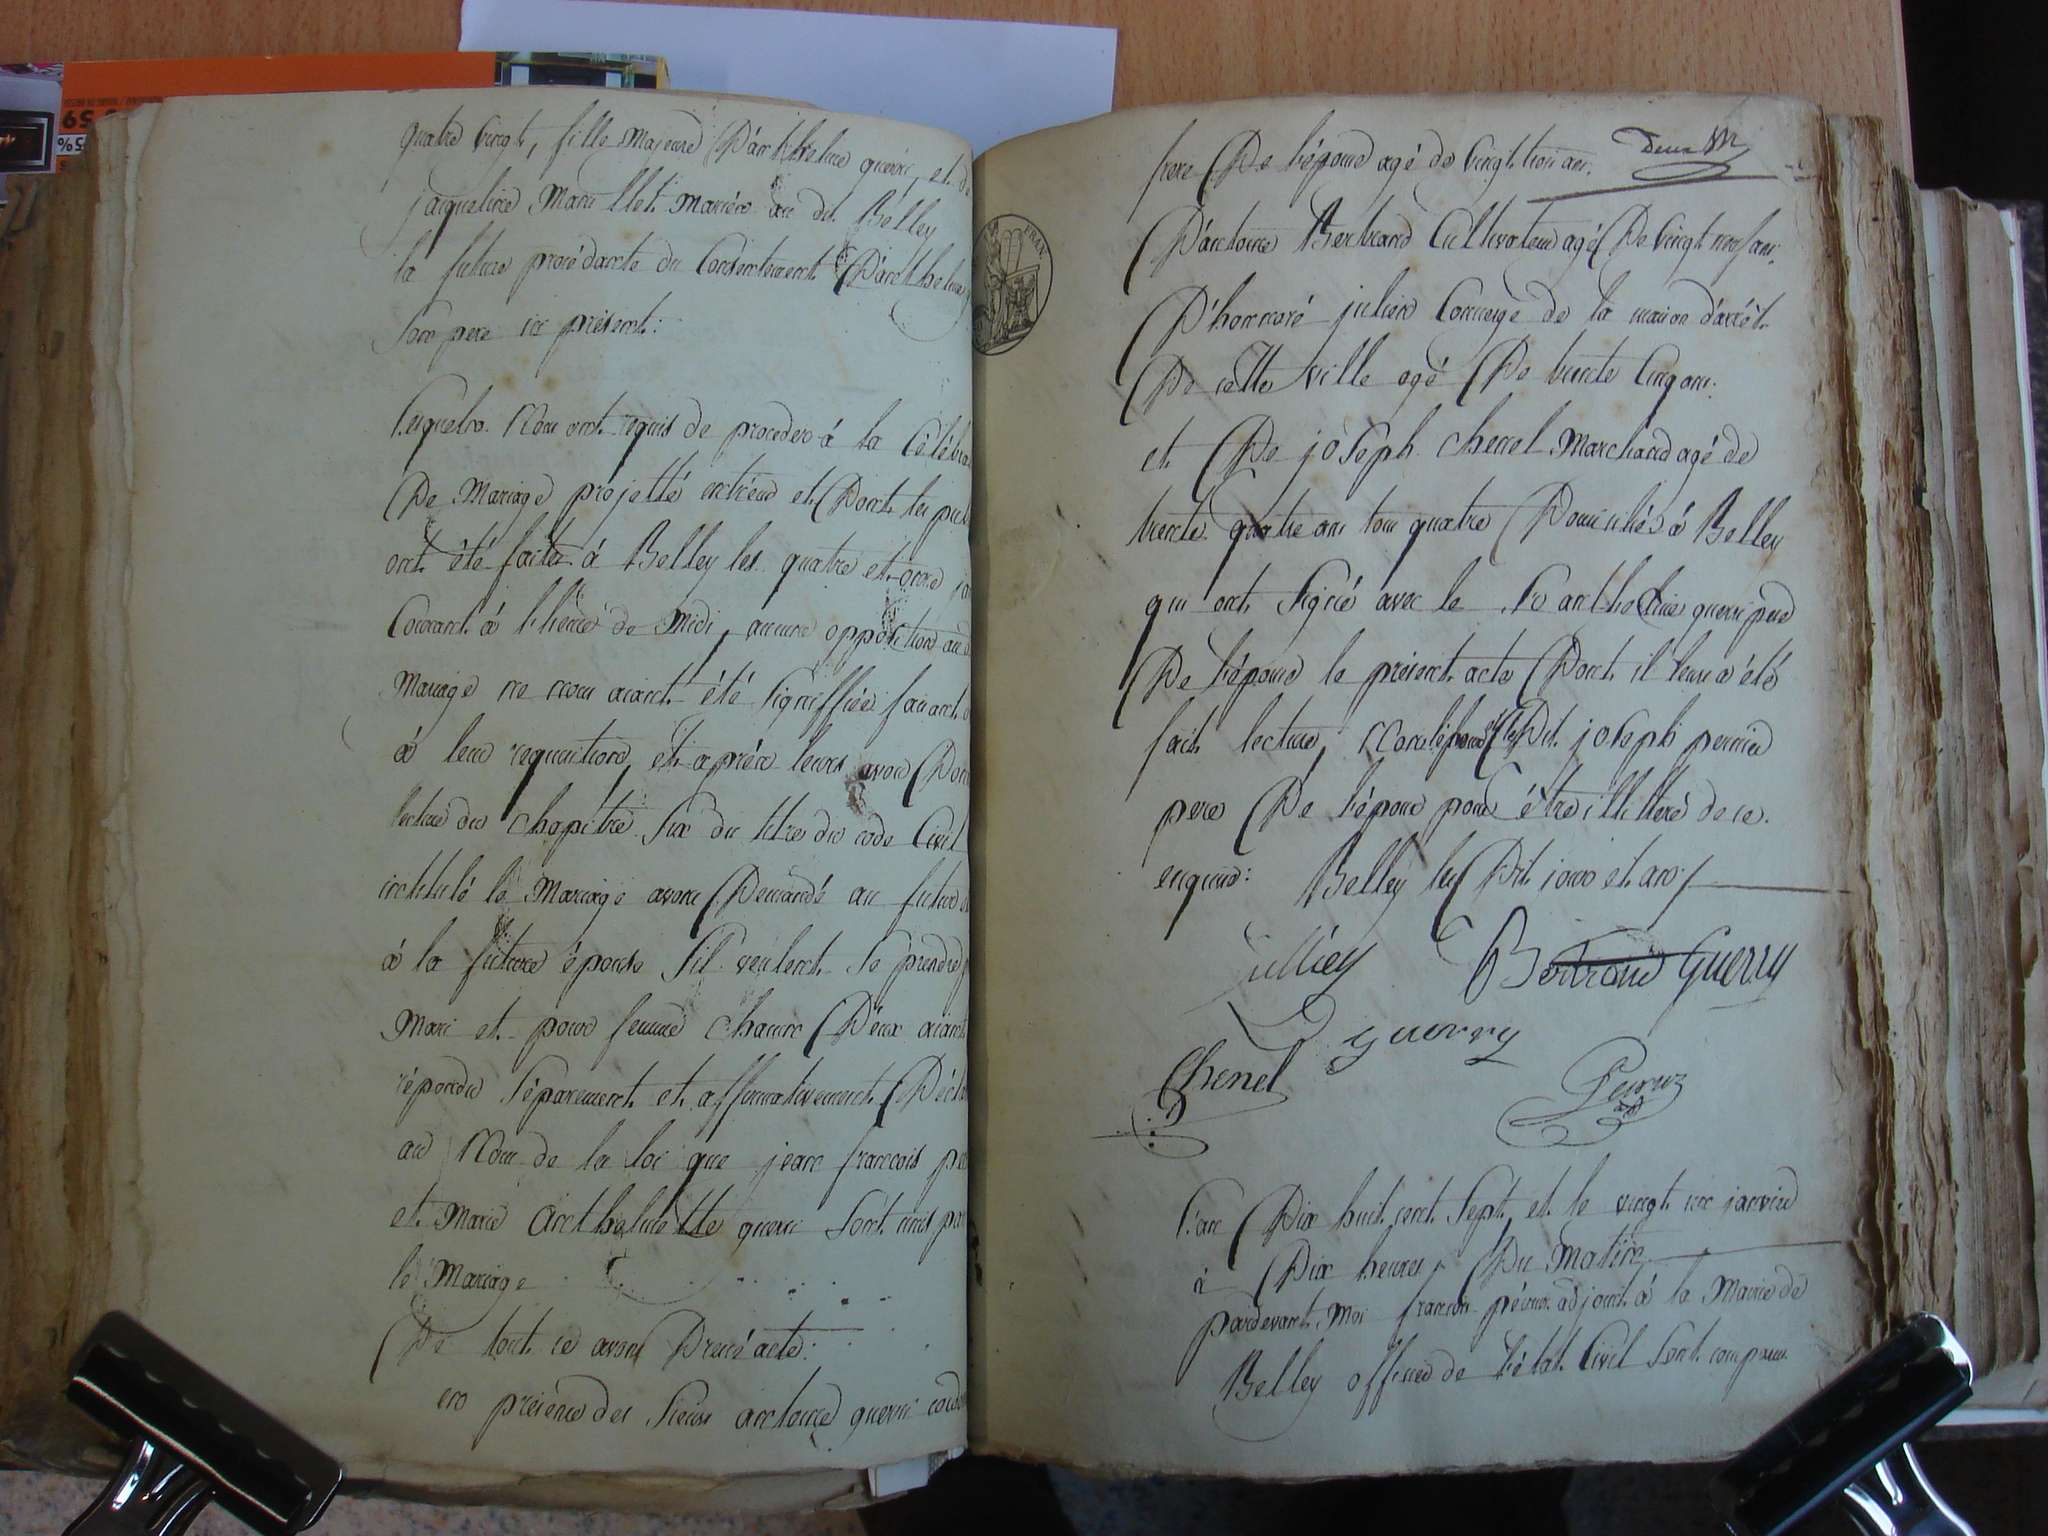 quatre vingt, fille majeure D'anthelme guerri, et de
jacqueline Marullet Mariés au dit Belley
la future procédante du Consentement D'anthelme
son pere ici présent:
Lesquels Nous ont requis de proceder à la Célébra
De Mariage projetté entr'eux et Dont les pu
ont été faites à Belley les quatre et onze ja
Courant à l'heure de Midi, aucune opposition au d
Mariage ne nous aiant été signiffiée faisant
à leur requisition, et après leurs avoir Donné
lecture du chapitre six du titre du code Civil
intitulé le Mariage avons Demandé au futur
à la future épouse s'il veulent se prendre p
Mari et pour femme chacun D'eux aiant
répondu séparement et affirmativement Décla
au Nom de la loi que jean françois per
et Marie Anthelmette guerri sont unis par
le Mariage
De tout ce avons Dressé acte:
en présence des sieurs antoine guerri
deux
frere De l'épouse agé de vingt trois ans.
D'antoine Bertrand Cultivateur agé De vingt neuf ans.
D'honnoré julien Concierge de la maison d'arrêt
De cette ville agé De trente Cinq ans.
et De joseph chenel Marchand agé de
trente quatre ans tous quatre Domiciliés à Belley
qui ont signé avec le sr anthelme guerri pere
De l'épouse le présent acte Dont il leurs a été
fait lecture, Non l'épouse ni le Dit joseph perrier
pere De l'époux pour être illittéré de ce
enquis: Belley les Dit jour et an
FRAN
jullien Bertrand Guerry
guerry
Chenel
Peysruz
L'an Dix huit cent sept, et le vingt un janvier
à Dix heures Du Matin
pardevant Moi françois adjoint à la Mairie de
Belley officier de l'état Civil sont comparus